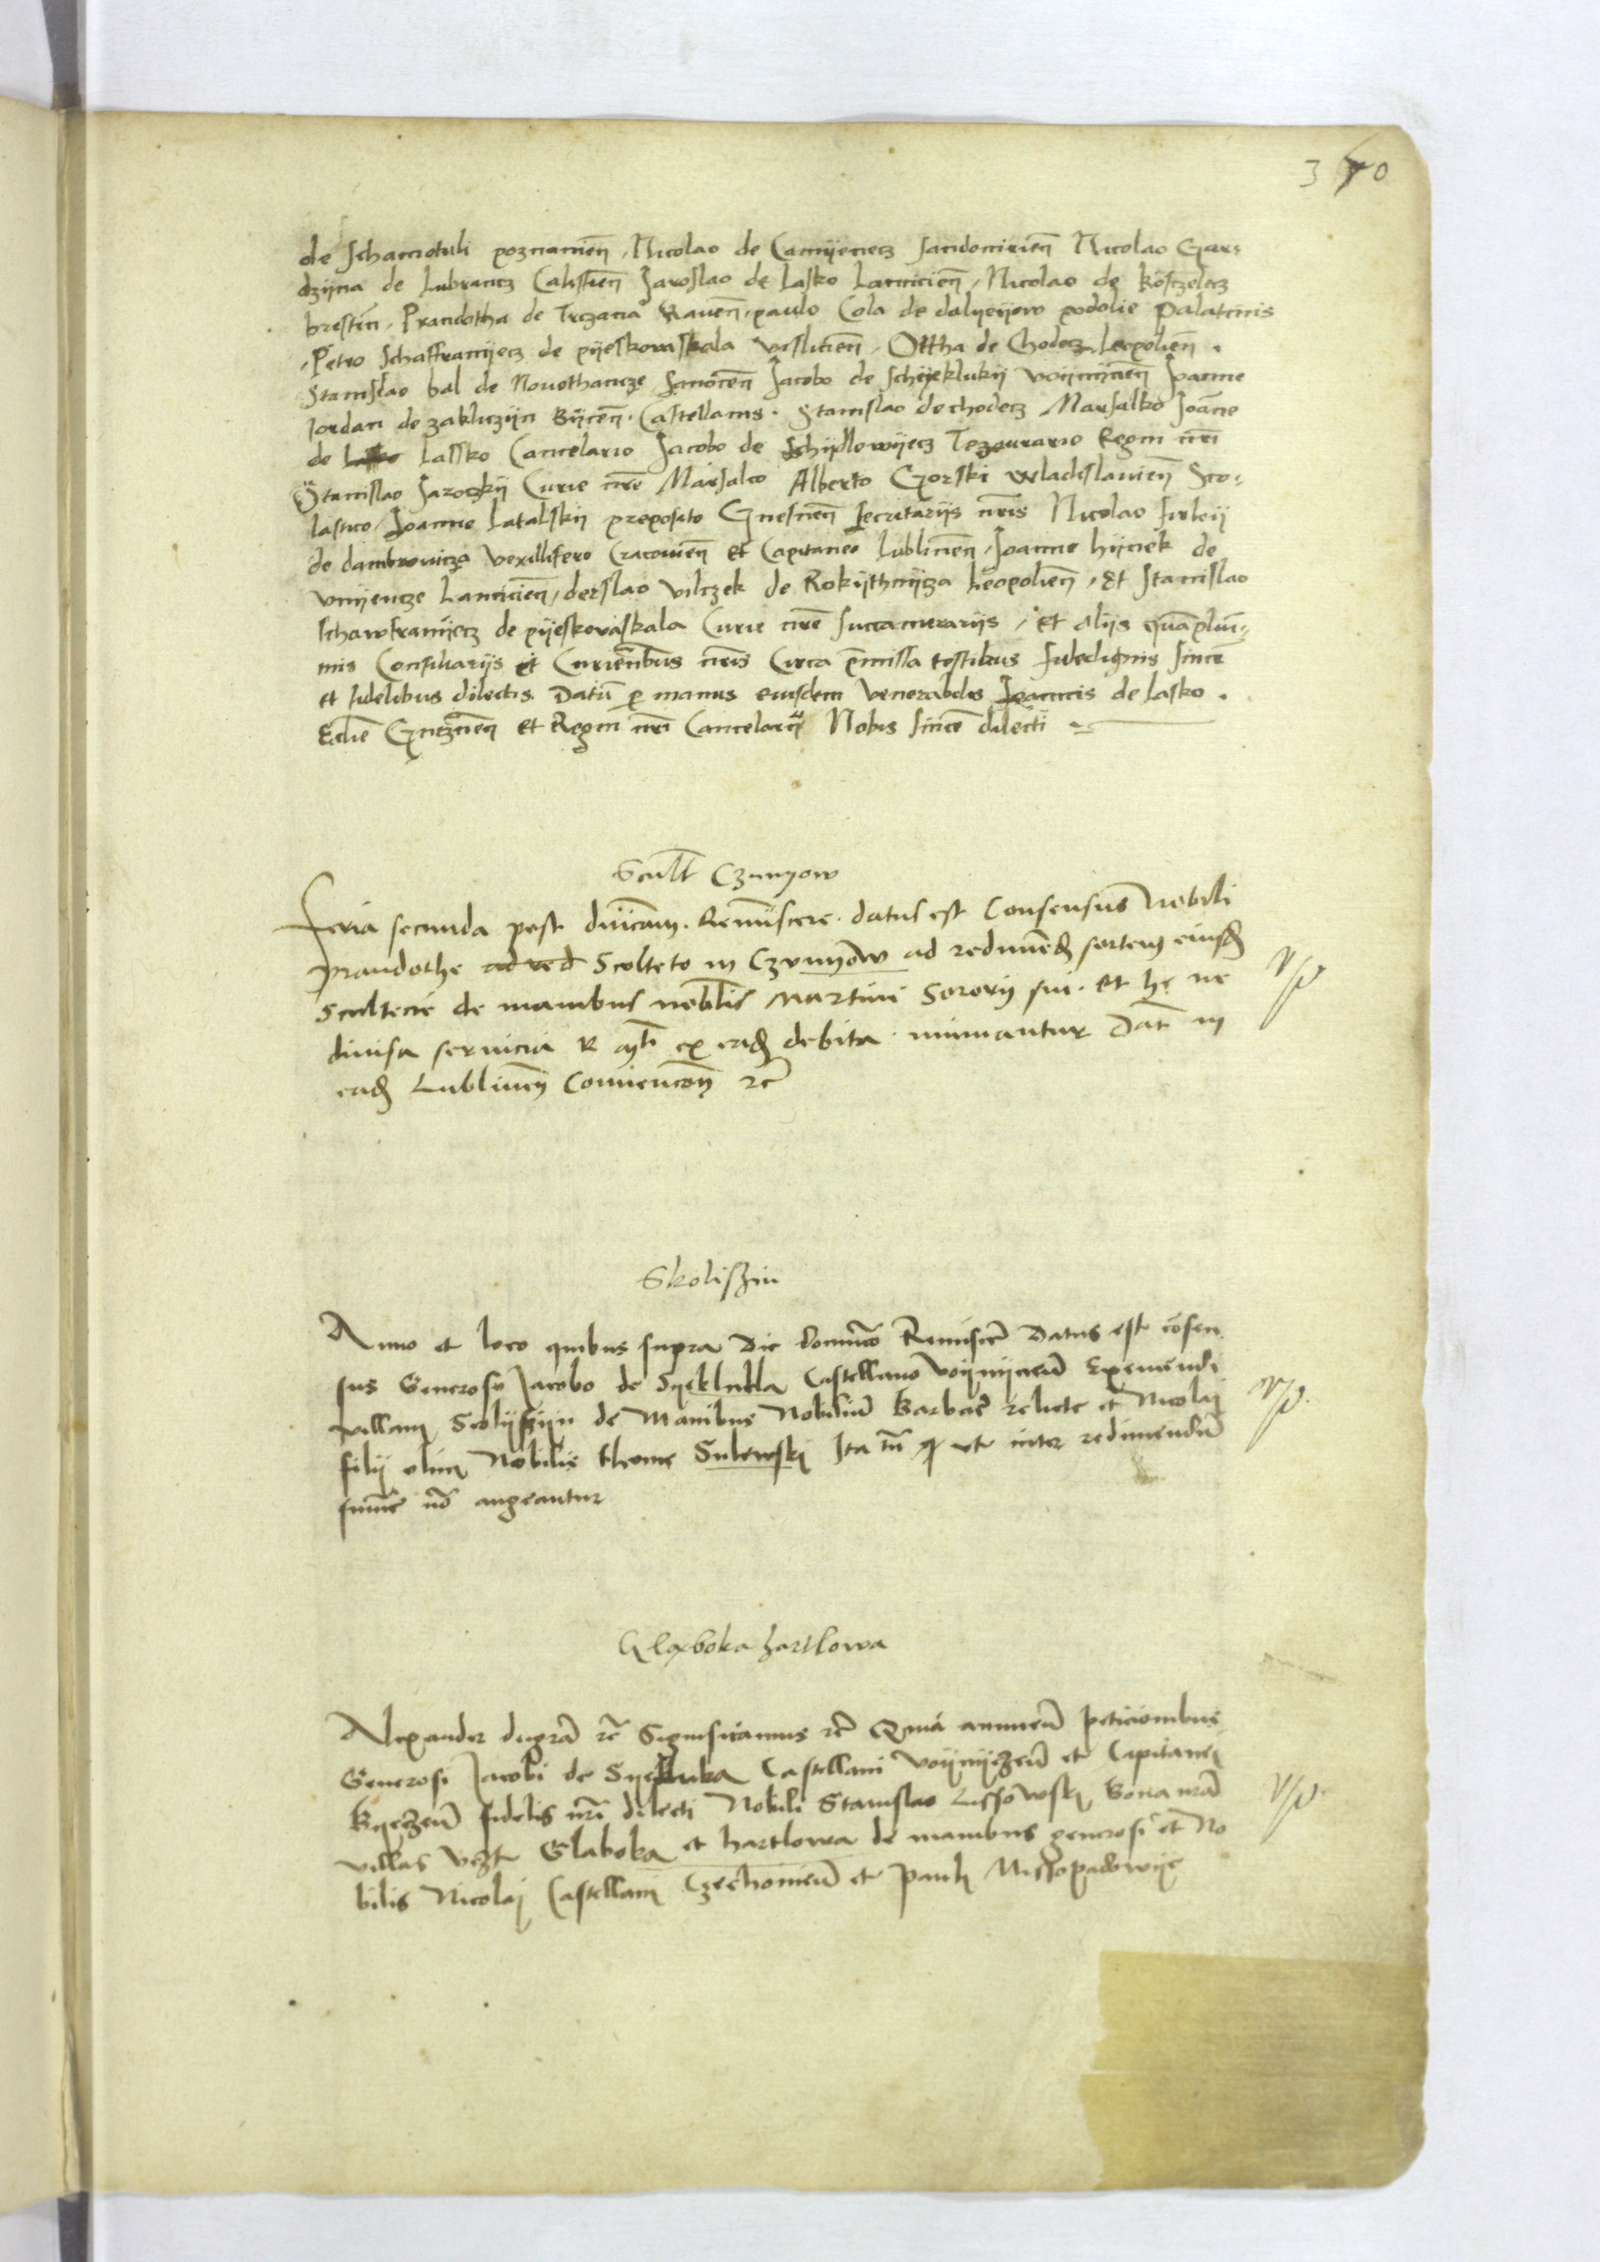 370
de Schamotuli poznanien̄, Nicolao de Camyenecz Sandomirien̄ Nicolao Gars-
dzyna de Lubrancz Calissien̄ Jaroslao de Lasko Lancicien̄, Nicolao de Kosczelecz
brestēn, Prandotha de Trczana Rauen̄, paulo Cola de dalyeyow podolie Palatinis
Petro Schaffranyecz de pyeskowaskala vislicien̄, Ottha de Chodecz Leopolien̄.
Stanislao bal de Novothancze Sanocen̄ Jacobo de Schyeklukij voynicien̄ Joanne
Jordan de zakliczyn Byecen̄. Castellanis. Stanislao de chodecz Marsalko Joāne
de Lassko Cancelario Jacobo de Schydlowyecz Tezaurario Regni nr̄i
Stanislao Jaroczkij Curie nrē Marsalco Alberto Gorski wladislavien̄ Sco-
lastico, Joanne Latalskij preposito Gnesnen̄ secritarijs nr̄is Nicolao firleij
de dambrovicza vexillifero Cracovien̄ et Capitaneo Lublinen̄, Joanne hijnek de
vnyencze Lancicien̄, derslao vilczek de Rokijthnijcza Leopolien̄, et Stanislao
Schawfranyecz de pyeskovaskala Curie nrē succamerarijs, et alijs quāpluri-
mis Consiliarijs et Curien̄bus nr̄is Circa p̄missa testibus fidedignis sincē
et fidelibus dilectis Datū p manus eiusdem Venerabilis Joannis de Lasko.
Ecclīe Gneznen̄ et Regni nr̄i Cancelarij Nobis sincē dilecti
Scult Czunyow
Feria secunda post dnicam. Reminiscere. datus est Consensus Nobili
prandothe ad red Scolteto in Czunyow ad redimend sortem eiusd
Scultecie de manibus nobilis Martini Sororij sui. et hc ne
divisa servicia R mti ex ead debita minuantur Dat in
ead Lublinen Convencōn etc
Skoliszin
Anno et loco quibus supra Die dominico Reminiscē Datus est cōsen
sus Generoso Jacobo de Syeklukla Castellano voynijcien̄ Eximendi
villam Scolyszijn de Manibus Nobilium Barbarē relicte et Nicolaj
filij olim Nobilis thome Sulewskj Ita tn̄ q ut inter redimendum
summe nō augeantur
Glaboka hartlowa
Alexander dei grā etc Significamus etc Quia annuen̄ peticionibus
Generosi Jacobi de Syekluka Castellani voynijczen̄ et Capitanei
Byeczen̄ fidelis nr̄i dilecti Nobili Stanislao Lissowskj bona nrā
villas vczt Glaboka et hartlowa de manibus generosi et No
bilis Nicolaj Castellani Czechonien̄ et Pauli Missopadowije